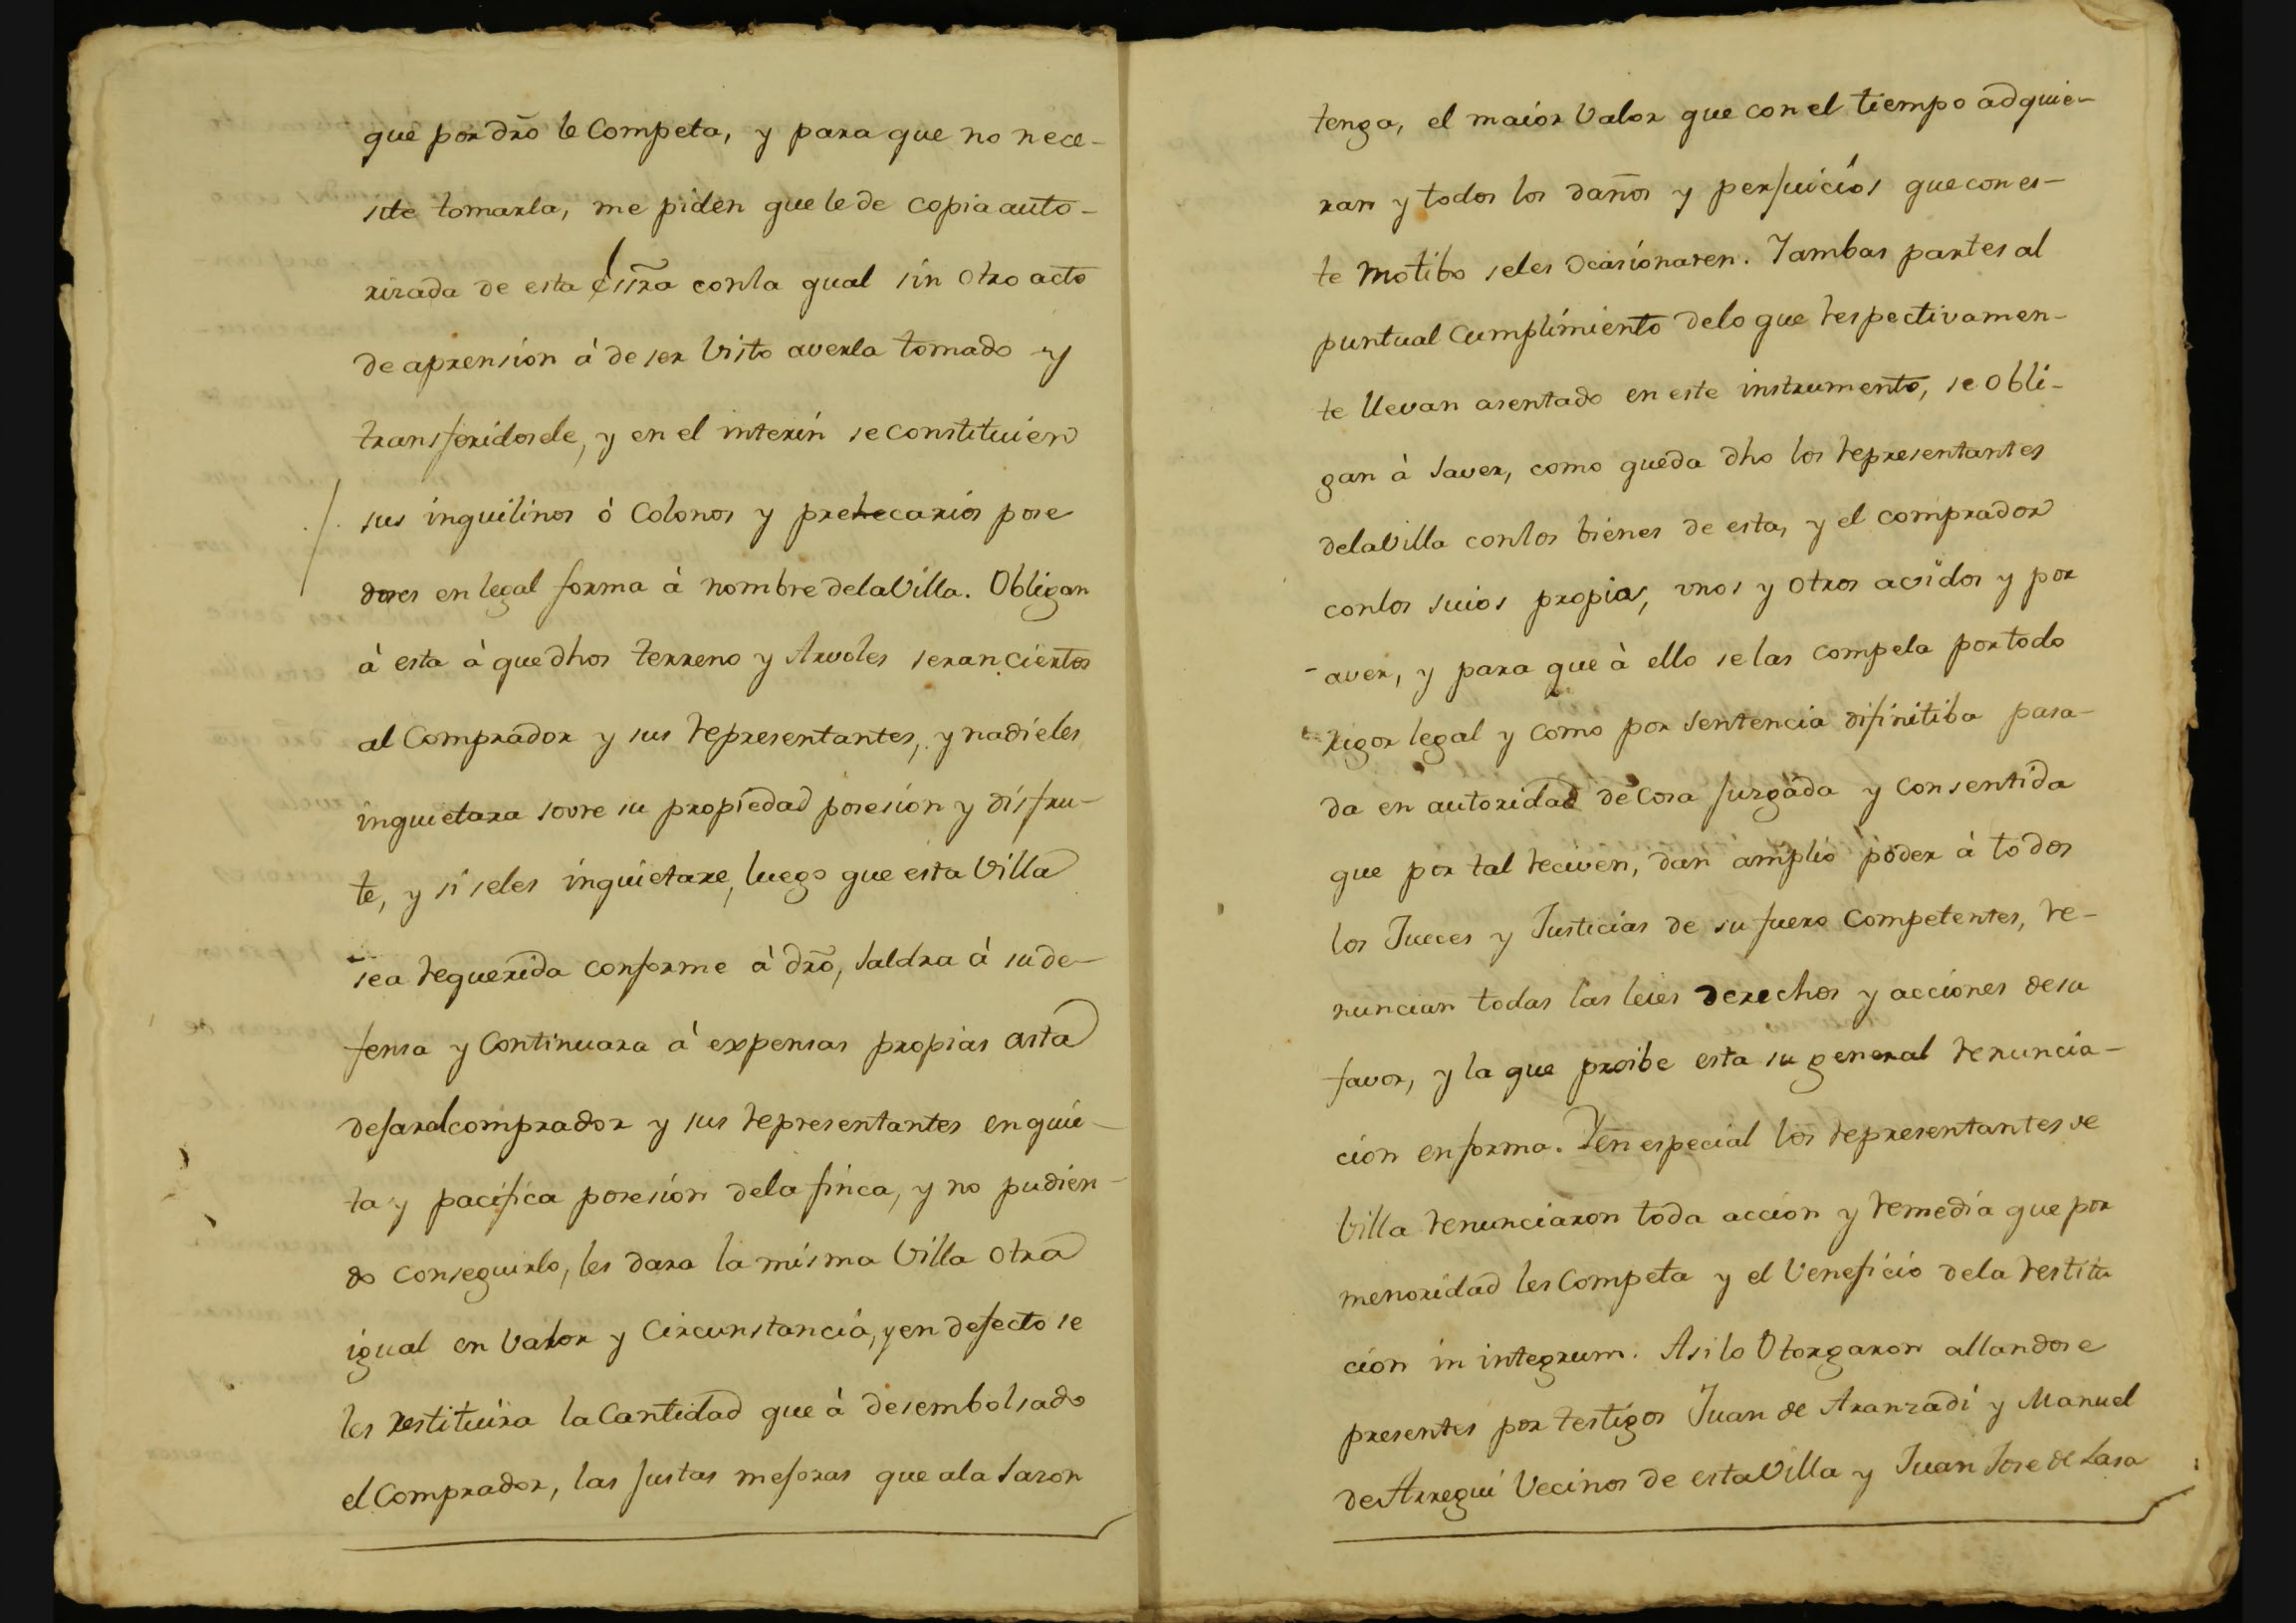 que por dr̃o le Competa, y para que no nece-
site tomarla, me piden que le de copia auto-
rizada de esta Essr̃a con la qual sin otro acto
de aprension à de ser visto averla tomado y
transferidosele, y en el interin se constituien
sus inquilinos ò Colonos y prehecarios pose
dores en legal forma à nombre dela Villa. Obligan
à esta à que dhos terreno y Arvoles seran ciertos
al Comprador y sus representantes, y nadie les
inquietara sovre su propiedad posesion y disfru-
te, y si seles inquietare, luego que esta Villa
sea requerida conforme à dr̃o, saldra à su de-
fensa y Continuara à expensas propias asta
dejar al comprador y sus representantes en quie-
ta y pacifica posesion dela finca, y no pudien-
do conseguirlo, les dara la misma Villa otra
igual en Valor y Circunstancia, y en defecto se
les restituira la Cantidad que à desembolsado
el Comprador, las justas mejoras que ala sazon
tenga, el maior Valor que con el tiempo adquie-
ran y todos los daños y perjuicios que con es-
te motibo seles ocasionaren. Y ambas partes al
puntual Cumplimiento delo que respectivamen-
te llevan asentado en este instrumento, se obli-
gan à saver, como queda dho los representantes
dela Villa con los bienes de esta, y el comprador
con los suios propios, vnos y otros avidos y por
aver, y para que à ello se las compela por todo
rigor legal y como por sentencia difinitiba pasa-
da en autoridad de cosa jurgada y consentida
que por tal reciven, dan amplio poder à todos
los Jueces y Justicias de su fuero Competentes, re-
nuncian todas las leies derechos y acciones de su
favor, y la que proibe esta su general renuncia-
cion en forma. Y en especial los representantes de
Villa renunciaron toda accion y remedia que por
menoridad les Competa y el Veneficio dela restitu
cion in integrum. Asi lo Otorgaron allandose
presentes por testigos Juan de Aranzadi y Manuel
de Arregui Vecinos de esta Villa y Juan Jose de Lasa